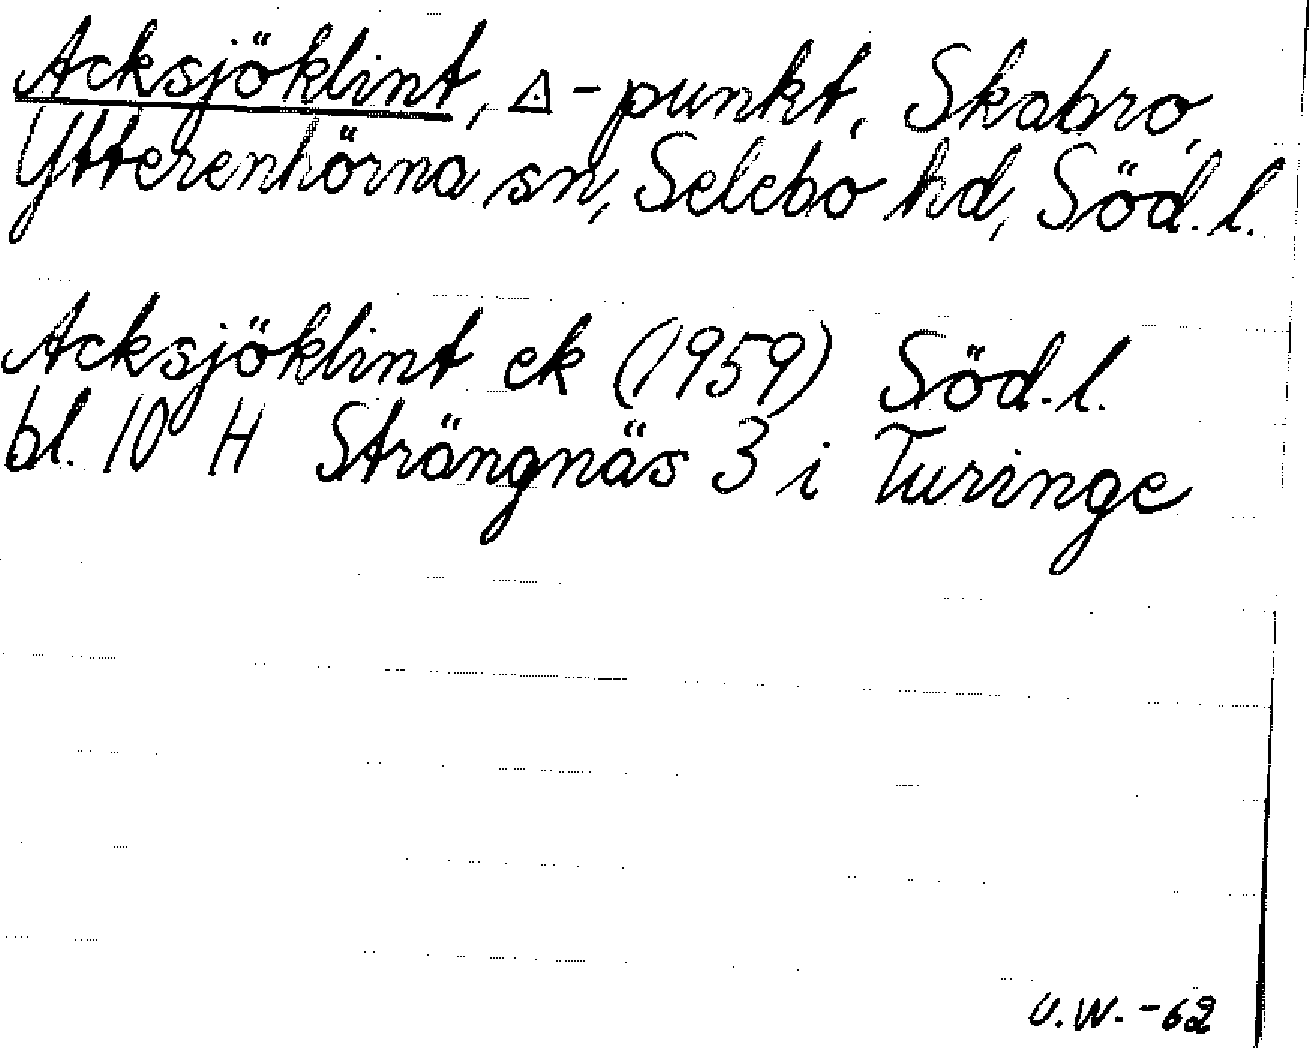 Acksjöklint, △-punkt, Skabro,
Ytterenhörna sn, Selebo hd, Söd.l.
Acksjöklint ek (1959) Söd.l.
bl. 10 H Strängnäs 3 i Turinge
U.W.-62